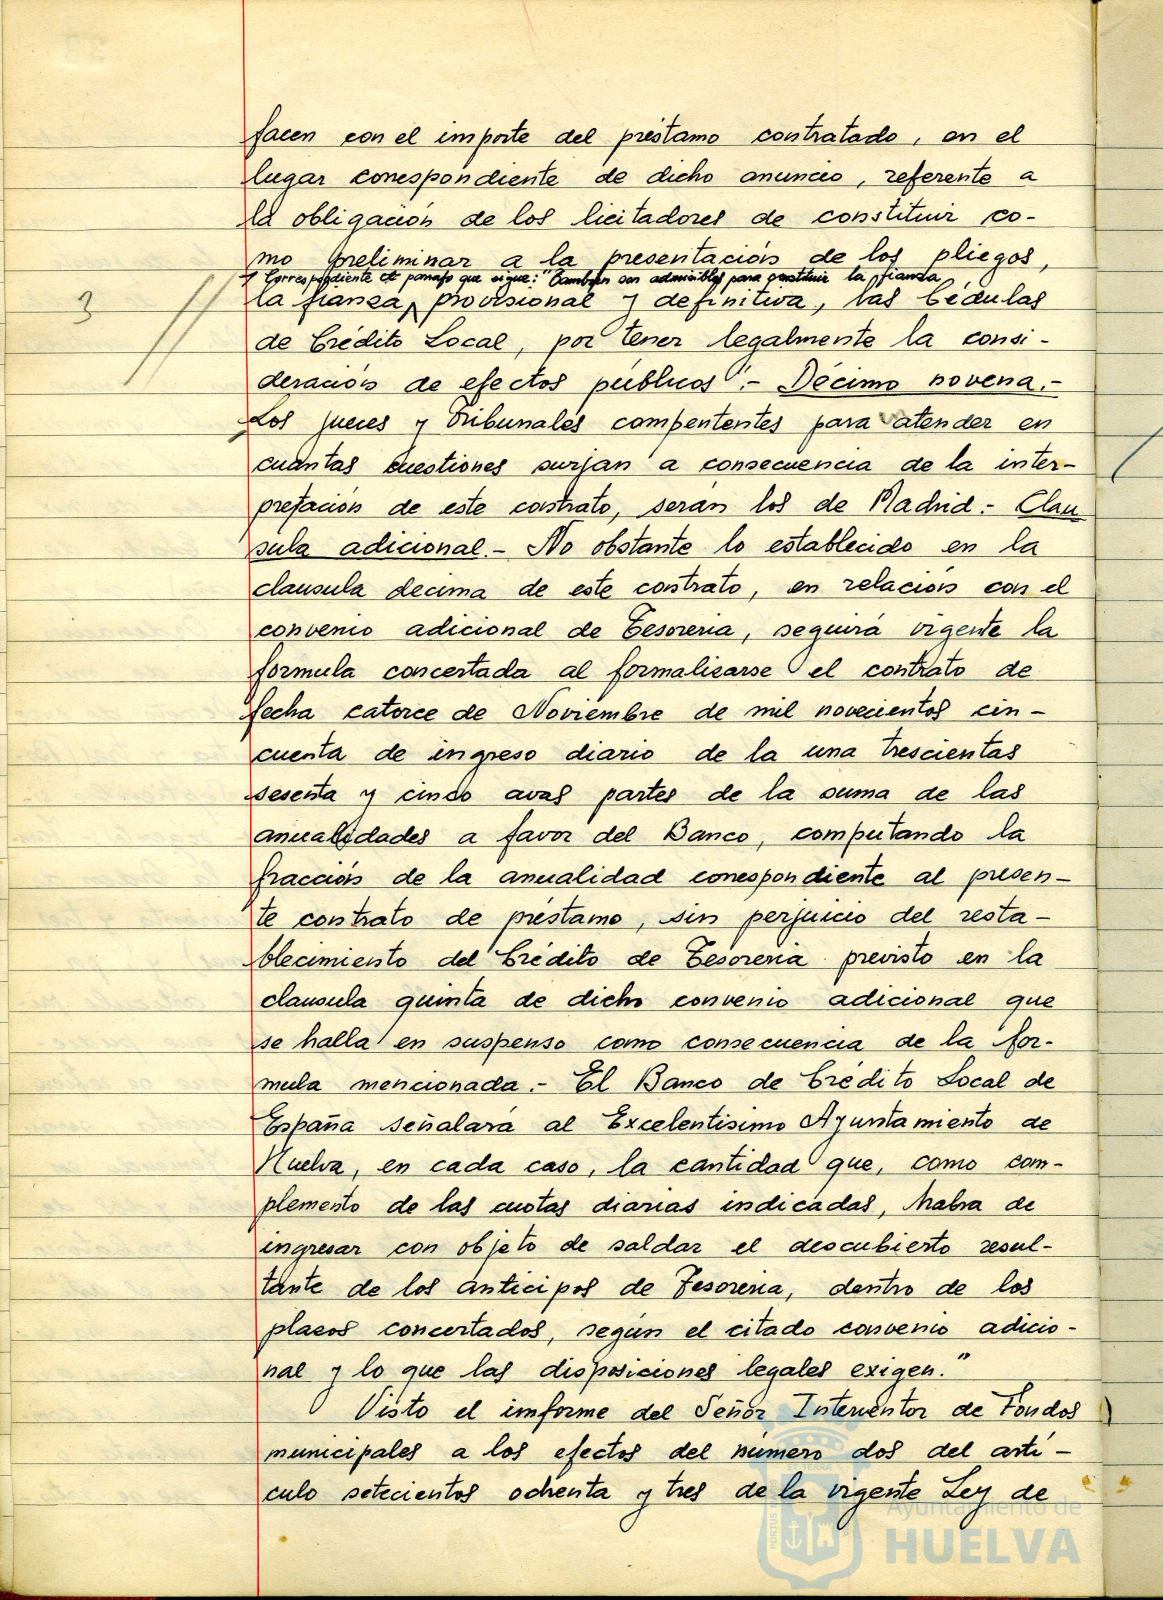 facen con el importe del préstamo contratado, en el
lugar correspondiente de dicho anuncio, referente a
la obligación de los licitadores de constituir co-
mo preliminar a la presentación de los pliegos,
y Correspondiente el parrafo que sigue: "Tambien son admisibles para constituir la fianza
la fianza provisional y definitiva, las Cédulas
3
de Crédito Local, por tener legalmente la consi-
deración de efectos públicos".- Décimo novena.-
Los jueces y Tribunales compententes para atender en
cuantas cuestiones surjan a consecuencia de la inter-
pretación de este contrato, serán los de Madrid.- Clau
sula adicional.- No obstante lo establecido en la
clausula decima de este contrato, en relación con el
convenio adicional de Tesoreria, seguirá vigente la
formula concertada al formalizarse el contrato de
fecha catorce de Noviembre de mil novecientos cin-
cuenta de ingreso diario de la una trescientas
sesenta y cinco avas partes de la suma de las
anualidades a favor del Banco, computando la
fracción de la anualidad correspondiente al presen-
te contrato de préstamo, sin perjuicio del resta-
blecimiento del Crédito de Tesoreria previsto en la
clausula quinta de dicho convenio adicional que
se halla en suspenso como consecuencia de la for-
mula mencionada.- El Banco de Crédito Local de
España señalará al Excelentisimo Ayuntamiento de
Huelva, en cada caso, la cantidad que, como com-
plemento de las cuotas diarias indicadas, habra de
ingresar con objeto de saldar el descubierto resul-
tante de los anticipos de Tesoreria, dentro de los
plazos concertados, según el citado convenio adicio-
nal y lo que las disposiciones legales exigen."
Visto el imforme del Señor Interventor de Fondos
municipales a los efectos del número dos del artí-
culo setecientos ochenta y tres de la vigente Ley de
Ayuntamiento de
HUELVA